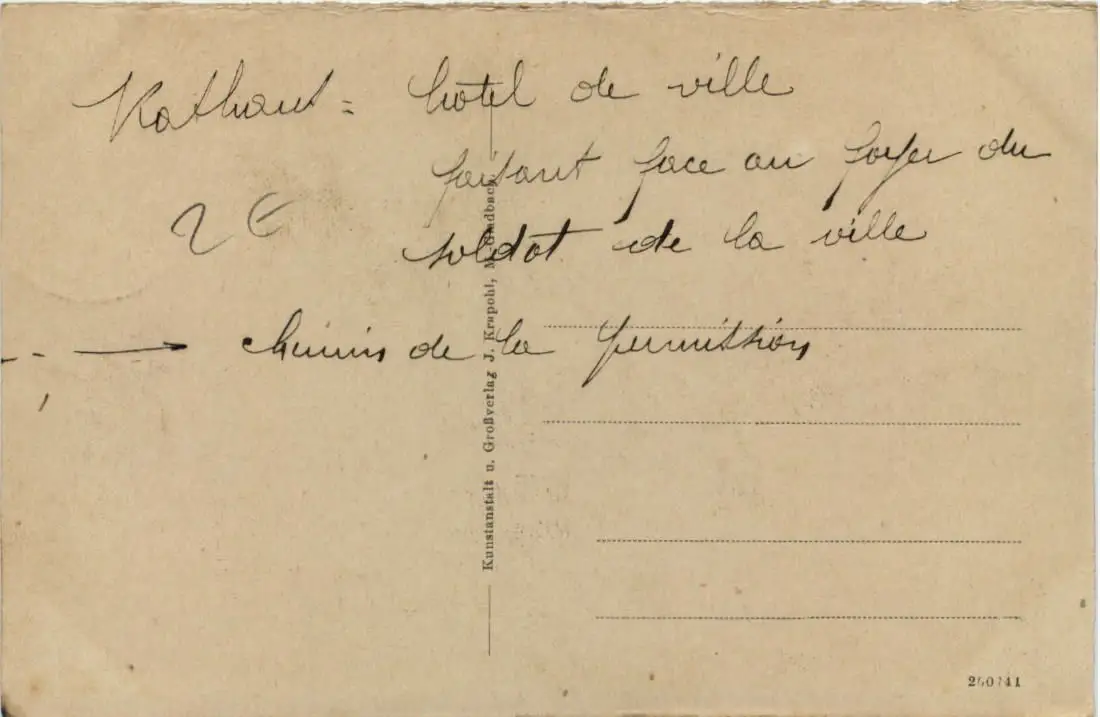 Rathaus = hôtel de ville
faisant face au foyer du
soldat de la ville
2 €
chemin de la permission
Kunstanstalt u. Großverlag J. Krapohl, M. Gladbach